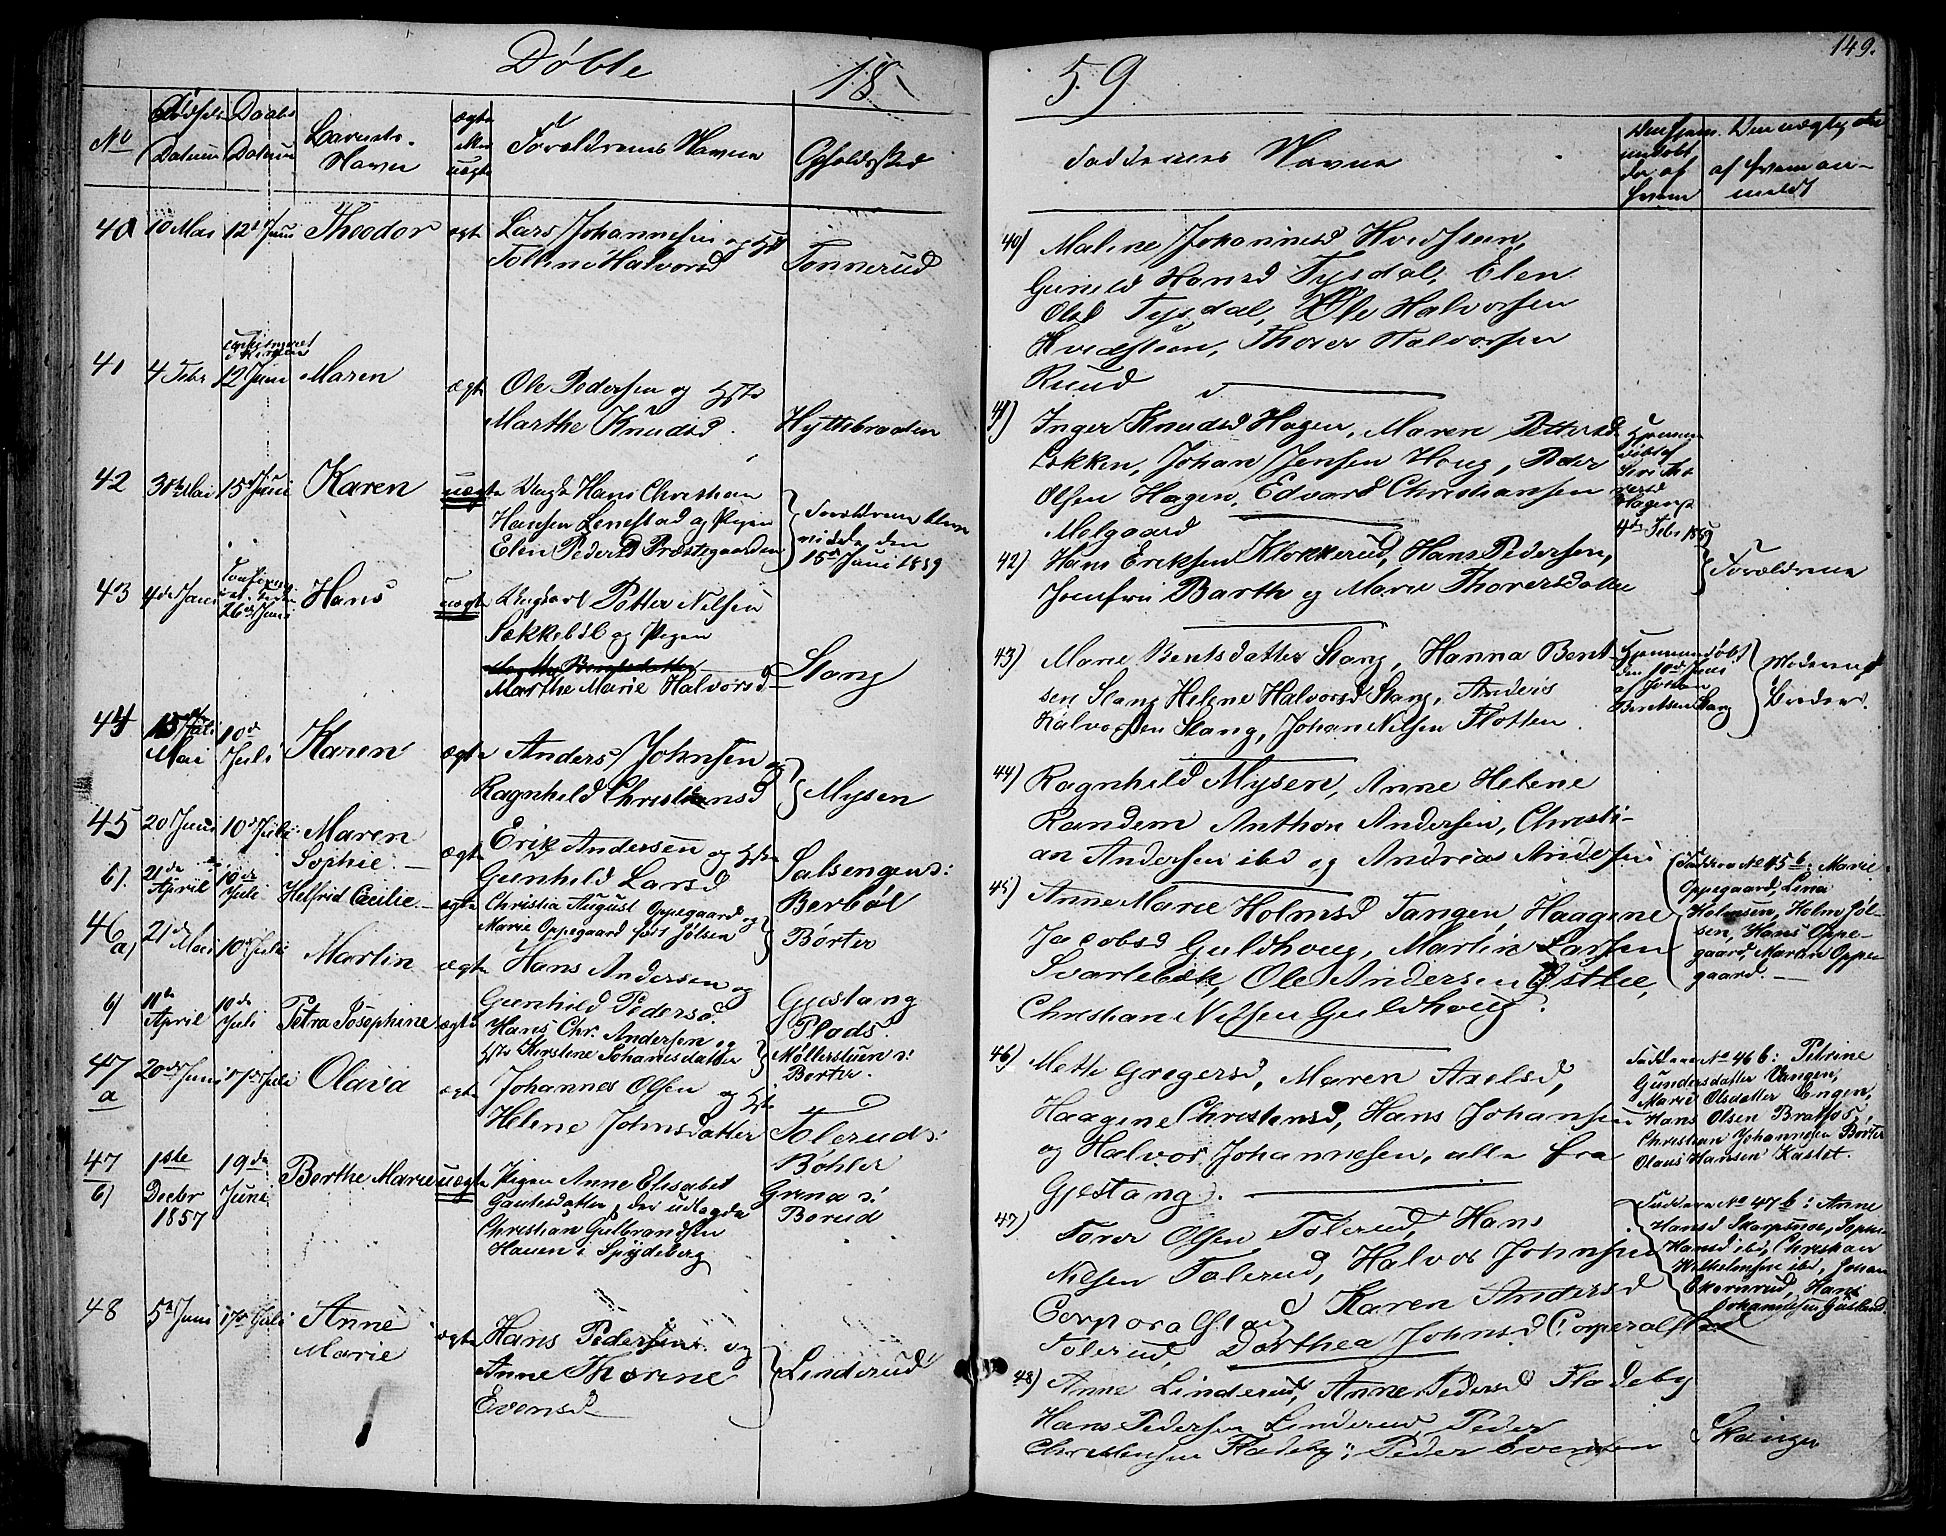 Døbte 18
No
Fødsels Datum
Daabs Datum
Barnets Navn
ægte eller uægte
Forældrenes Navne
Opholdssted
40 10 Mai 12te Juni Theodor ægte Lars Johannesen og Hst
Toline Halvorsd Tonnerud
41 4 Febr 12 Juni Maren ægte Ole Pedersen og Hst
Marthe Knudsd. Hyttebraaten
42 30te Mai 15de Juni Karen uægte Ungk Hans Christian
Hansen Lenestad og Pigen
Elen Pedersd Præstegaarden
Forældrene
den
15de Juni 1859
43 4de Juni 26de Juni Hans uægte Ungkarl Petter Nilsen
Sækkebøl og Pigen
Marthe Marie Halvorsd Stang
44 Mai 10de Juli Karen ægte Anders Johnsen og
Ragnhild Christiansd Mysen
45 20 Juni 10de Juli Maren Sophie ægte Erik Andersen og Hst
Gunhild Larsd Salsengen
b). 21de April 10de Juli Helfrid Cæcilie ægte Christian August Oppegaard og
Marie Oppegaard født Jølsen Berbøl Børter
46 a) 21de Mai 10de Juli Martin ægte Hans Andersen og
Gunhild Pedersd. Gjestang Plads
b) 11te April 10de Juli Petra Josephine ægte Hans Chr. Andersen og
Hst Kirstine Johanisdatter Møllerstuen i Børter.
47 a 20de Juni 17de Juli Olava ægte Johannes Olsen og Hst
Helene Johnsdatter Tolerud
47 b) 1ste Decbr 1857 19de June Berthe Marie uægte Pigen Anne Elisabet
Gautesdatter, der udlagde
Christian Gulbrandsen
Hauen i Spydeberg
Bøhler Grena i Borud
48 5te Juni 17de Juli Anne Marie ægte Hans Pedersen og
Anne Thorine
Evensd Linderud
59
149.
Faddernes Navne
Den hjemmedøbt da af hvem
Den uægte af hvem anmeldt
40) Malene Johannesd Hvidsteen,
Gunild Hansd Tysdal, Elen
Olsd Tysdal, Ole Halvorsen
Hvidsteen, Thorer Halvorsen
Ruud
41) Inger Knudsd Hagen, Maren Pettersd
Løkken, Johan Jensen Houg, Peder
Olsen Hagen, Edvard Christiansen
Melgaard
4de Febr 1859
42) Hans Eriksen Klokkerud, Hans Pedersen,
Jomfru Barth og Marie Thorersdatter
Forældrene
43) Marie Berntsdatter Stang, Hanna Bernt-
sen Stang Helene Halvorsd Stang, Anders
Halvorsen Stang, Johan Nilsen Flotten
Hjemmedøbt
den 10de Juni
af Johan
Berntsen Stang
Moderens
Broder.
44) Ragnhild Mysen, Anne Helene
Randem Anthon Andersen, Christi-
an Andersen ibd og Andreas Andersen
45) Anne Marie Holmsd Tangen, Haagine
Jacobsd Guldhoug, Martin Larsen
Svartebæk, Ole Andersen Østlie,
Christian Nilsen Guldhoug.
Faddere No 45 b: Marie
Oppegaard, Lina
Holmsen, Holm Jøl-
sen, Hans Oppe-
gaard, Martin Oppe-
gaard.
46) Mette Gregersd, Maren Axelsd,
Haagine Christensd, Hans Johansen
og Halvor Johannesen, alle fra
Gjestang.
Faddere No 46 b: Petrine
Gundersdatter Vangen,
Marie Olsdatter Engen,
Hans Olsen Bratfos,
Christian Johannesen Børter
Olaus Hansen Kastet.
47) Torer Olsen Tolerud, Hans
Nilsen Tolerud, Halvor Johnsen
Corporalstad Karen Andersd
Tolerud, Dorthea Johnsd Corporalstad
Faddere No 47 b: Anne
Hansd Skarpsnoe, Sophie
Hansd ibd, Christian
Wilhelmsen ibd, Johan
Ekornrud, Hans
Johannesen Gusland
48) Anne Linderud, Anne Pedersd Fladeby
Hans Pedersen Linderud, Peder
Christensen Fladeby, Peder Evensen